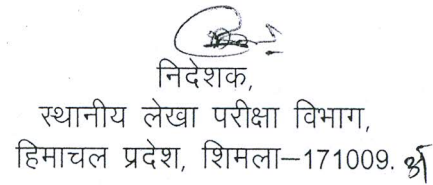 निदेशक,
स्थानीय लेखा परीक्षा विभाग,
हिमाचल प्रदेश, शिमला–171009.